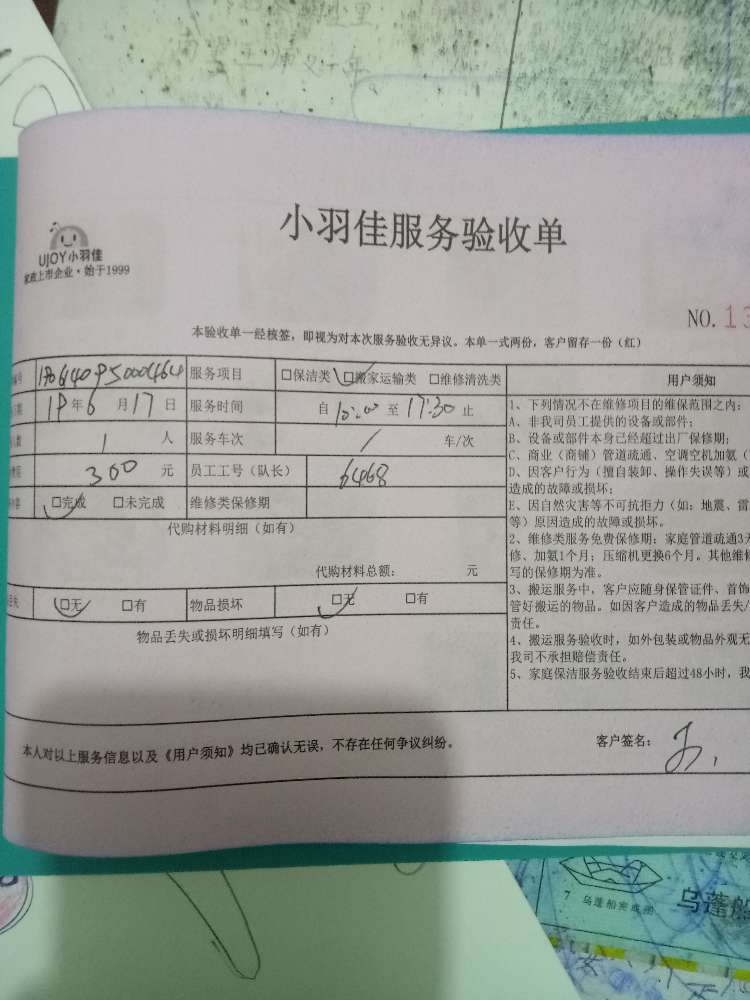 小羽佳服务验收单
UJOY小羽佳
家政上市企业·始于1999
NO.13
本验收单一经核签，即视为对本次服务验收无异议。本单一式两份，客户留存一份（红）
号 服务项目 □保洁类 □搬家运输类 □维修清洗类 用户须知
期 19年6月17日 服务时间 自 至17:30止
人数 1 人 服务车次 / 车/次
300 元 员工工号（队长） 6468
□完成 □未完成 维修类保修期
代购材料明细（如有）
代购材料总额： 元
丢失 □无 □有 物品损坏 □无 □有
物品丢失或损坏明细填写（如有）
1、下列情况不在维修项目的维保范围之内：
A、非我司员工提供的设备或部件；
B、设备或部件本身已经超过出厂保修期；
C、商业（商铺）管道疏通、空调空机加氨（
D、因客户行为（擅自装卸、操作失误等）或
造成的故障或损坏；
E、因自然灾害等不可抗拒力（如：地震、雷
等）原因造成的故障或损坏。
2、维修类服务免费保修期：家庭管道疏通3天
修、加氨1个月；压缩机更换6个月。其他维修
写的保修期为准。
3、搬运服务中，客户应随身保管证件、首饰
管好搬运的物品。如因客户造成的物品丢失/
责任。
4、搬运服务验收时，如外包装或物品外观无
我司不承担赔偿责任。
5、家庭保洁服务验收结束后超过48小时，我
本人对以上服务信息以及《用户须知》均已确认无误，不存在任何争议纠纷。
客户签名：
7 乌篷船
乌篷船